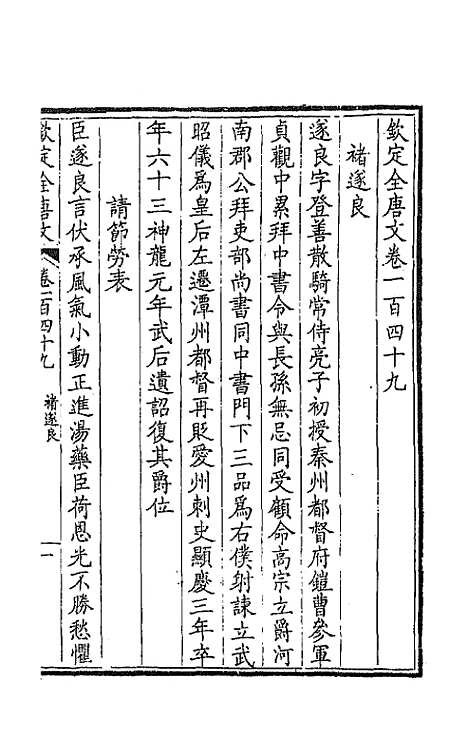 欽定全唐文卷一百四十九
褚遂良
遂良字登善散騎常侍亮子初授秦州都督府鎧曹參軍
貞觀中累拜中書令與長孫無忌同受顧命高宗立爵河
南郡公拜吏部尚書同中書門下三品為右僕射諫立武
昭儀為皇后左遷潭州都督再貶愛州刺史顯慶三年卒
年六十三神龍元年武后遺詔復其爵位
請節勞表
臣遂良言伏承風氣小動正進湯藥臣荷恩光不勝愁懼
欽定全唐文 卷一百四十九 褚遂良 一